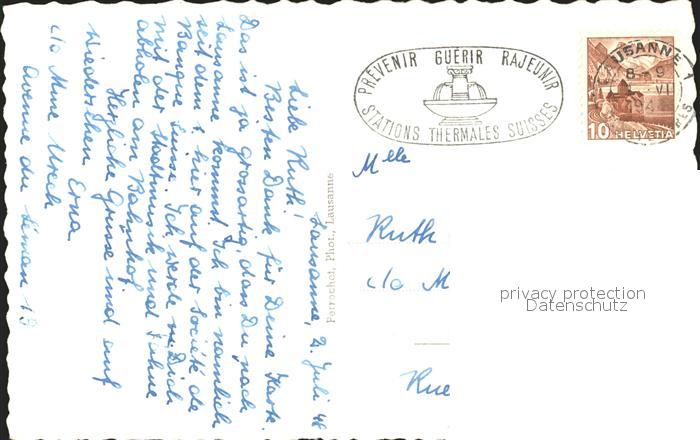 Lausanne, 2. Juli 48
Liebe Ruth!
Besten Dank für Deine Karte.
Das ist ja grossartig, dass Du nach
Lausanne kommst. Ich bin nämlich
seit dem 1. hier auf der Société de
Banque Suisse. Ich werde Dich
mit der Stadtmusik und Fahne
abholen am Bahnhof.
Herzliche Grüsse und auf
Wiedersehen Erna
c/o Mme Ureck
Avenue du Léman 19
Perrochet, Phot., Lausanne
PREVENIR GUÉRIR RAJEUNIR
STATIONS THERMALES SUISSES
LAUSANNE 1
10 HELVETIA
Mlle
Ruth
c/o M
Rue
privacy protection
Datenschutz